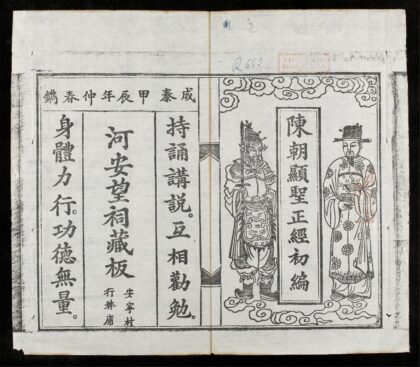 陳朝顯聖正經初編
成泰甲辰年仲春鐫
持誦講說。互相勸勉。
河安望祠藏板
安寧村
行絲庸
身體力行。功德無量。